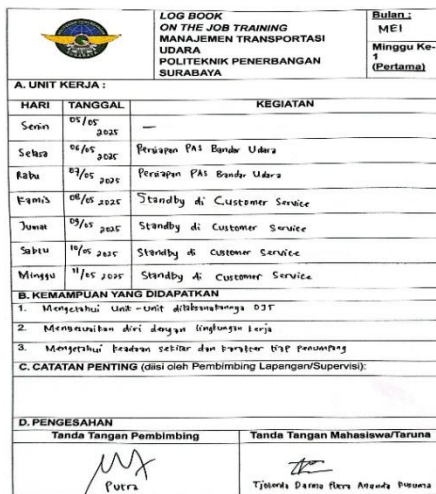 LOG BOOK
ON THE JOB TRAINING
MANAJEMEN TRANSPORTASI
UDARA
POLITEKNIK PENERBANGAN
SURABAYA
Bulan :
MEI
Minggu Ke-
1
(Pertama)
A. UNIT KERJA :
HARI TANGGAL KEGIATAN
Senin 05/05 2025 —
Selasa 06/05 2025 Persiapan PAS Bandar Udara
Rabu 07/05 2025 Persiapan PAS Bandar Udara
Kamis 08/05 2025 Standby di Customer Service
Jumat 09/05 2025 Standby di Customer Service
Sabtu 10/05 2025 Standby di Customer Service
Minggu 11/05 2025 Standby di Customer Service
B. KEMAMPUAN YANG DIDAPATKAN
1. Mengetahui Unit-Unit dilaksanakannya OJT
2. Menyesuaikan diri dengan lingkungan kerja
3. Mengetahui keadaan sekitar dan karakter tiap penumpang
C. CATATAN PENTING (diisi oleh Pembimbing Lapangan/Supervisi):
D. PENGESAHAN
Tanda Tangan Pembimbing Tanda Tangan Mahasiswa/Taruna
Putra
Darma Putra Ananda Kusuma